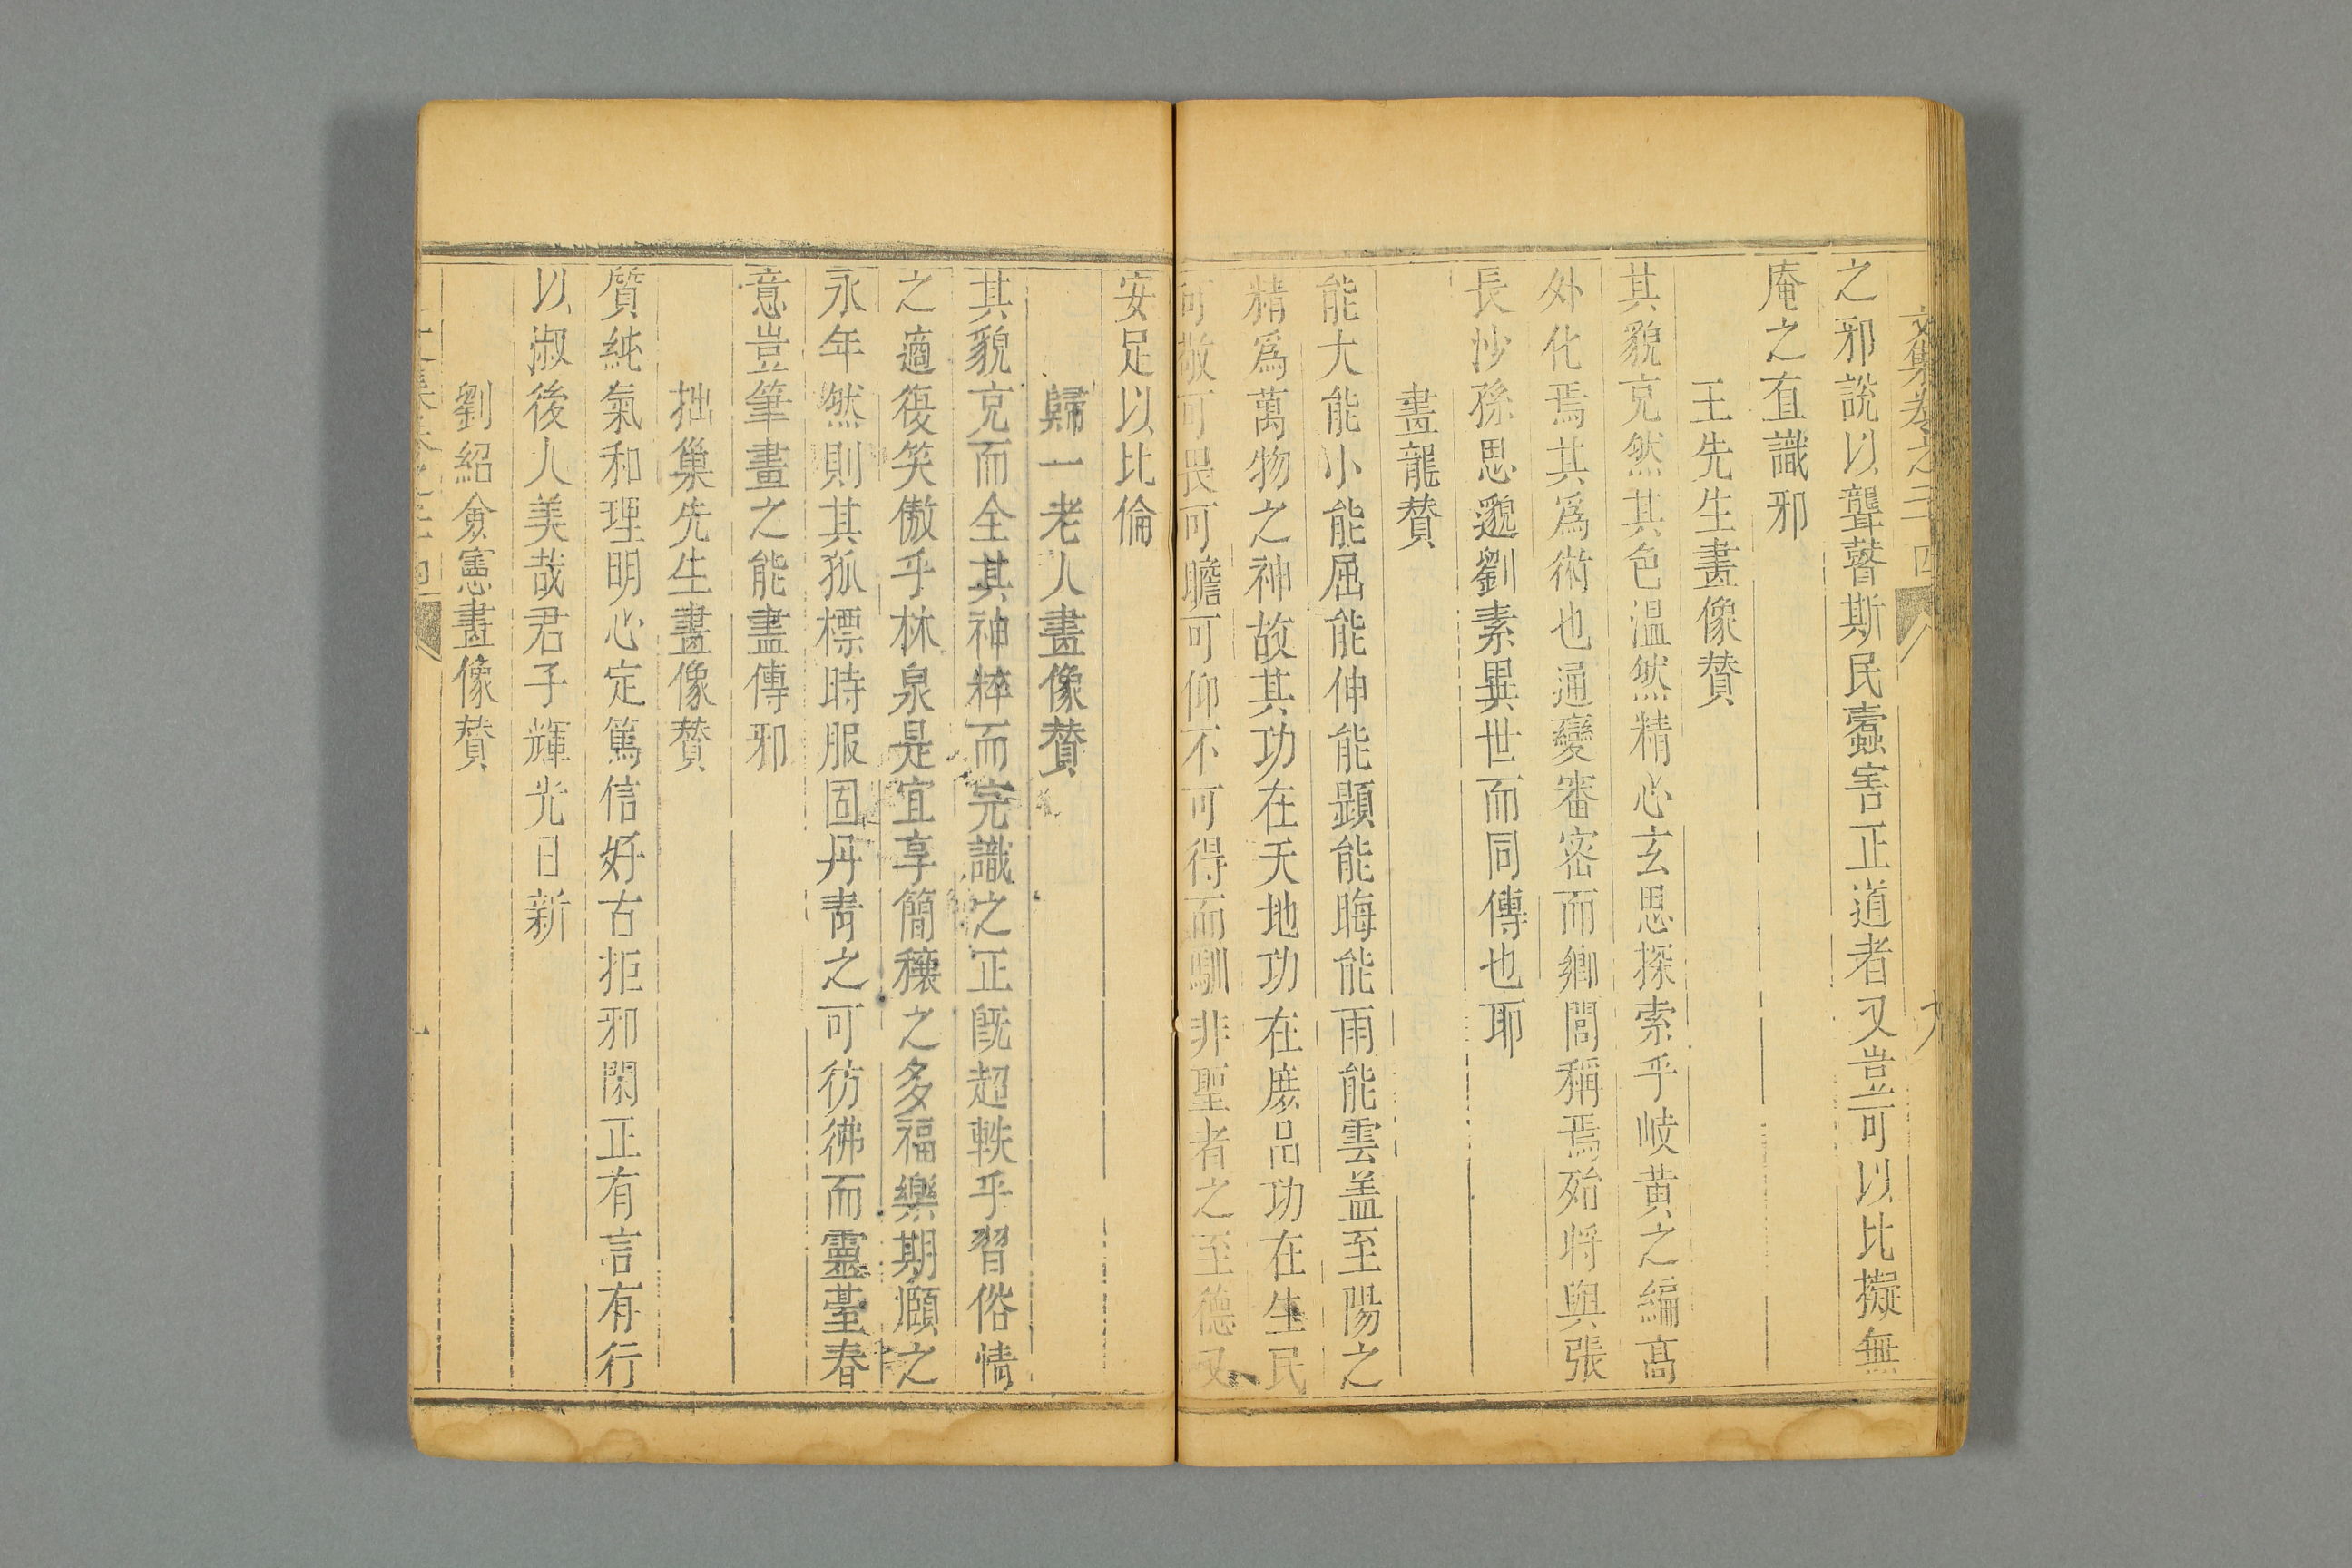 文集卷之三十四
九
之邪說以聾瞽斯民蠹害正道者又豈可以比擬無
庵之直識邪
王先生畫像賛
其貌克然其色温然精心玄思探索乎岐黄之編髙
外化焉其爲術也通變審密而鄉閭稱焉殆将與張
長沙孫思邈劉素異世而同傳也耶
畫龍賛
能大能小能屈能伸能顯能晦能雨能雲盖至陽之
精爲萬物之神故其功在天地功在庶品功在生民
可敬可畏可瞻可仰不可得而馴非聖者之至德又
安足以比倫
歸一老人畫像賛
其貌克而全其神粹而完識之正旣超軼乎習俗情
之適復笑傲乎林泉是宜享簡穰之多福樂期頤之
永年然則其孤標時服固丹靑之可彷彿而靈䑓春
意豈筆畫之能盡傳邪
拙巢先生畫像賛
質純氣和理明心定篤信好古拒邪閑正有言有行
以淑後人美哉君子輝光日新
劉紹僉憲畫像賛